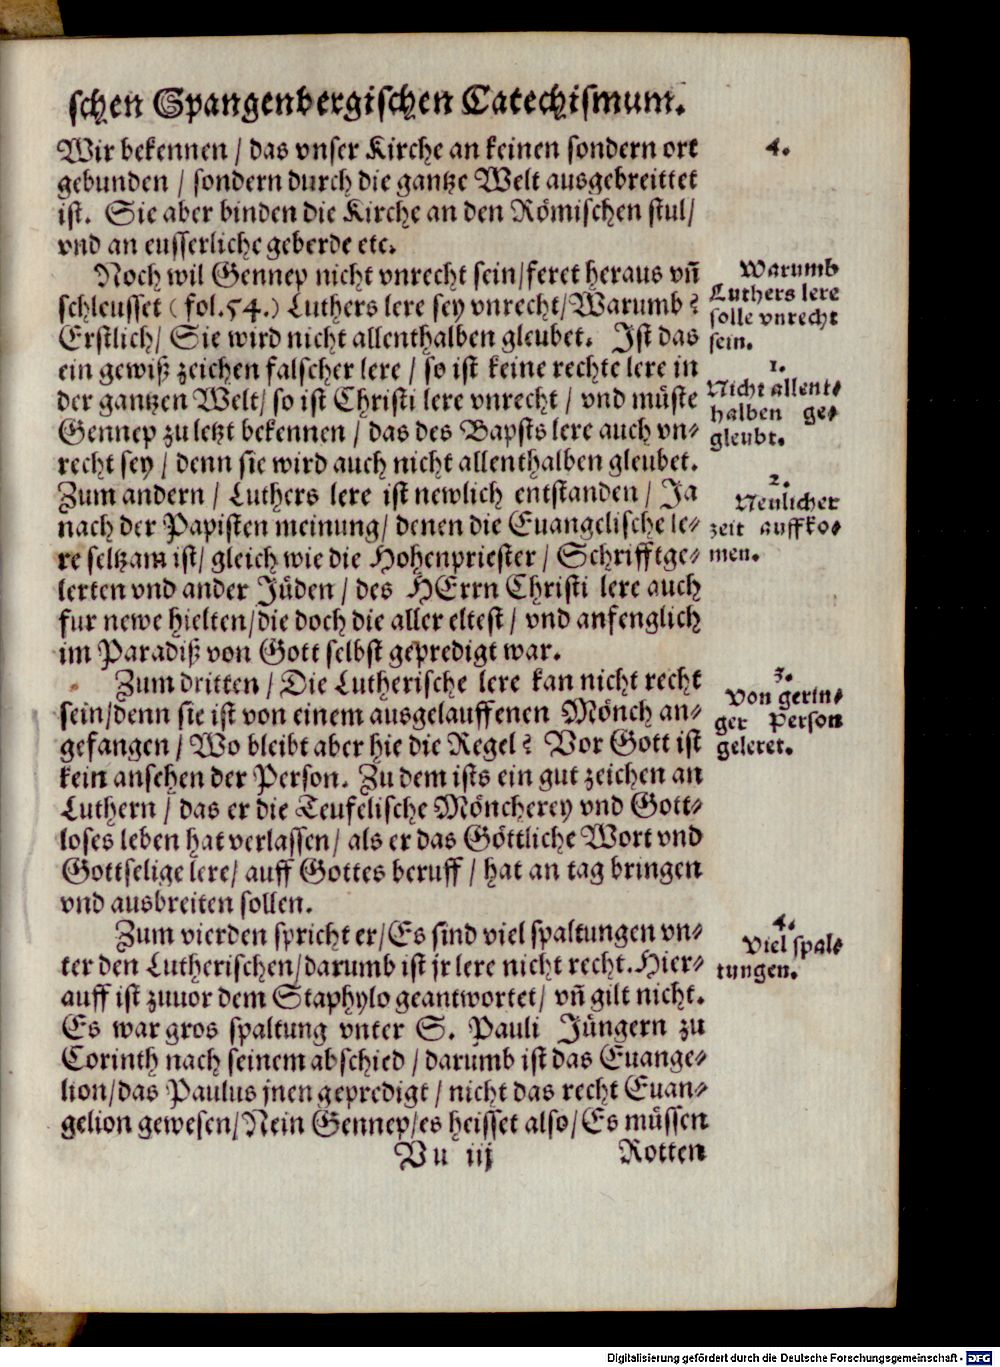 schen Spangenbergischen Catechismum.
Wir bekennen / das vnser Kirche an keinen sondern ort
gebunden / sondern durch die gantze Welt ausgebreittet
ist. Sie aber binden die Kirche an den Römischen stul/
vnd an eusserliche geberde etc.
4.
Noch wil Gennep nicht vnrecht sein/feret heraus vñ
schleusset (fol.54.) Luthers lere sey vnrecht/Warumb?
Erstlich/ Sie wird nicht allenthalben gleubet. Ist das
ein gewiß zeichen falscher lere / so ist keine rechte lere in
der gantzen Welt/ so ist Christi lere vnrecht / vnd müste
Gennep zu letzt bekennen / das des Bapsts lere auch vn-
recht sey / denn sie wird auch nicht allenthalben gleubet.
Warumb
Luthers lere
solle vnrecht
sein.
1.
Nicht allent-
halben ge-
gleubt.
Zum andern / Luthers lere ist newlich entstanden / Ja
nach der Papisten meinung/ denen die Euangelische le-
re seltzam ist/ gleich wie die Hohenpriester / Schrifftge-
lerten vnd ander Jüden / des HErrn Christi lere auch
fur newe hielten/die doch die aller eltest / vnd anfenglich
im Paradiß von Gott selbst gepredigt war.
2.
Neulicher
zeit auffko-
men.
Zum dritten / Die Lutherische lere kan nicht recht
sein/denn sie ist von einem ausgelauffenen Mönch an-
gefangen / Wo bleibt aber hie die Regel? Vor Gott ist
kein ansehen der Person. Zu dem ists ein gut zeichen an
Luthern / das er die Teufelische Möncherey vnd Gott-
loses leben hat verlassen/ als er das Göttliche Wort vnd
Gottselige lere/ auff Gottes beruff / hat an tag bringen
vnd ausbreiten sollen.
3.
Von gerin-
ger Person
geleret.
Zum vierden spricht er/Es sind viel spaltungen vn-
ter den Lutherischen/darumb ist jr lere nicht recht. Hier-
auff ist zuuor dem Staphylo geantwortet/ vñ gilt nicht.
Es war gros spaltung vnter S. Pauli Jüngern zu
Corinth nach seinem abschied / darumb ist das Euange-
lion/das Paulus jnen gepredigt / nicht das recht Euan-
gelion gewesen/Nein Gennep/es heisset also/Es müssen
4.
Viel spal-
tungen.
Vu iij
Rotten
Digitalisierung gefördert durch die Deutsche Forschungsgemeinschaft - DFG